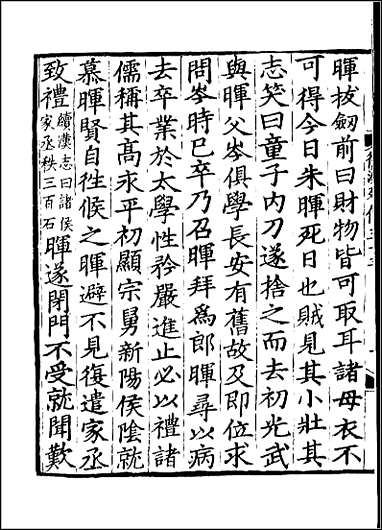 暉拔劒前曰財物皆可取耳諸母衣不
可得今日朱暉死日也賊見其小壯其
志笑曰童子内刀遂捨之而去初光武
與暉父岑俱學長安有舊故及即位求
問岑時已卒乃召暉拜爲郎暉尋以病
去卒業於太學性矜嚴進止必以禮諸
儒稱其高永平初顯宗舅新陽侯陰就
慕暉賢自徃候之暉避不見復遣家丞
致禮續漢志曰諸侯家丞秩三百石暉遂閉門不受就聞歎